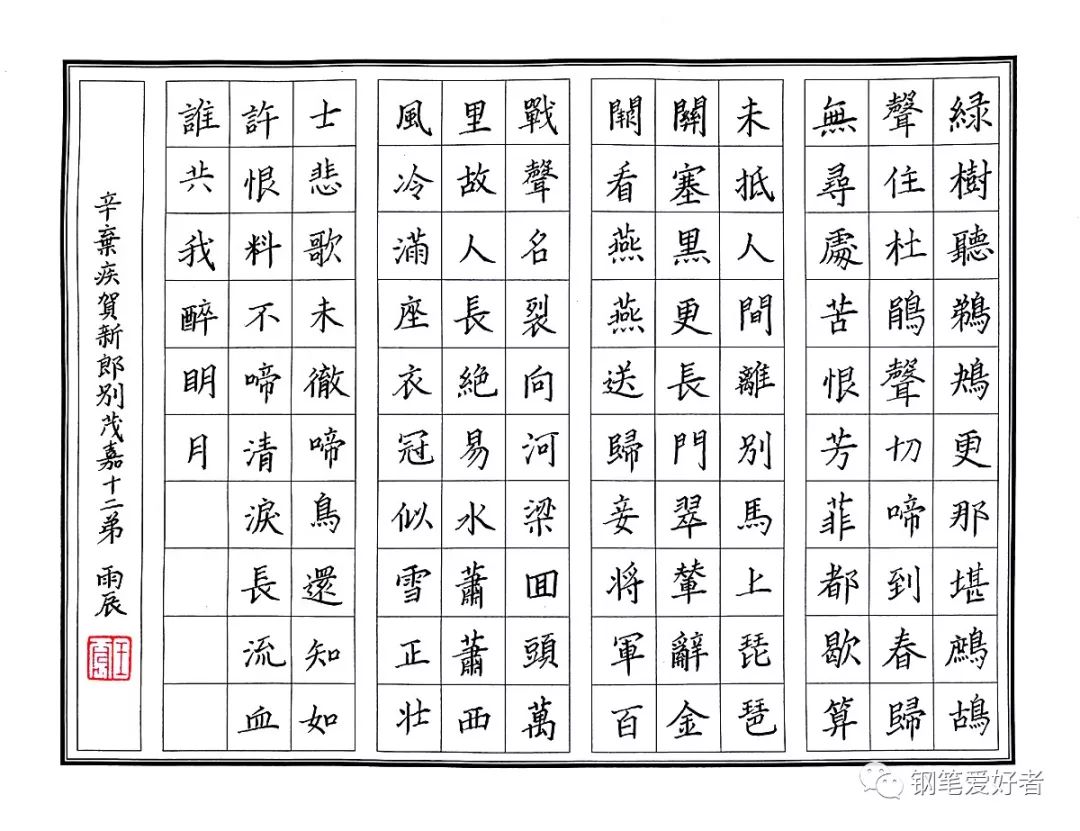 緑樹聽鵜鴂更那堪鷓鴣
聲住杜鵑聲切啼到春歸
無尋處苦恨芳菲都歇算
未抵人間離別馬上琵琶
關塞黑更長門翠輦辭金
闕看燕燕送歸妾将軍百
戰聲名裂向河梁囬頭萬
里故人長絶易水蕭蕭西
風冷滿座衣冠似雪正壮
士悲歌未徹啼鳥還知如
許恨料不啼清淚長流血
誰共我醉明月
辛棄疾賀新郎別茂嘉十二弟 雨辰
钢笔爱好者